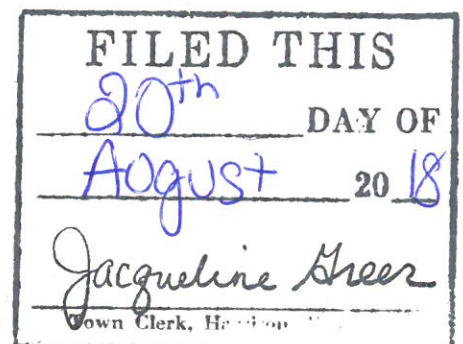 FILED THIS
20th DAY OF
August 20 18
Jacqueline Greer
Town Clerk, Harrison